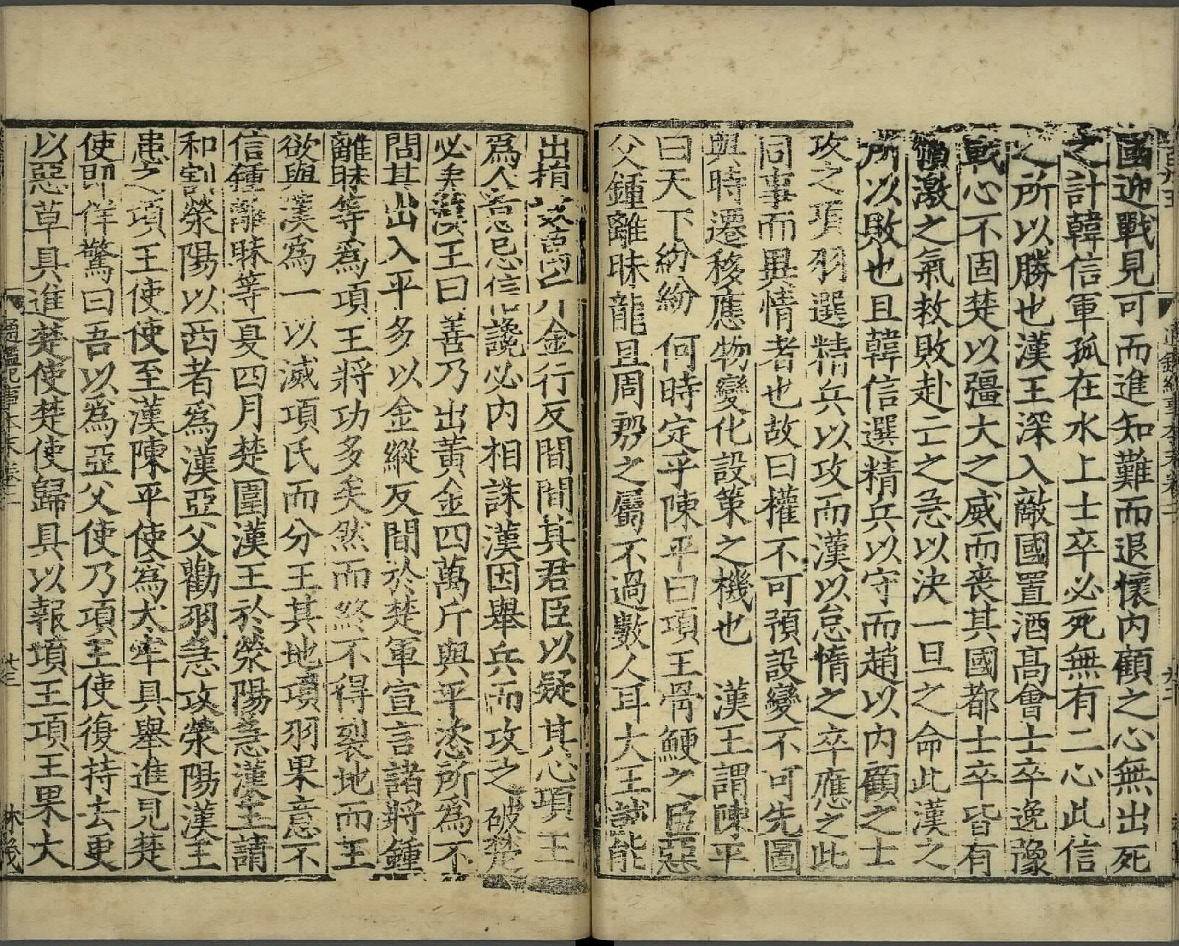 國迎戰見可而進知難而退懷内顧之心無出死
之計韓信軍孤在水上士卒必死無有二心此信
之所以勝也漢王深入敵國置酒高會士卒逸豫
戰心不固楚以彊大之威而喪其國都士卒皆有
憤激之氣救敗赴亡之急以決一旦之命此漢之
所以敗也且韓信選精兵以守而趙以内顧之士
攻之項羽選精兵以攻而漢以怠惰之卒應之此
同事而異情者也故曰權不可預設變不可先圖
與時遷移應物變化設策之機也 漢王謂陳平
曰天下紛紛何時定乎陳平曰項王骨鯁之臣亞
父鍾離昧龍且周勃之屬不過數人耳大王誠能
出捐 斤金行反間間其君臣以疑其心項王
爲人意忌信讒必内相誅漢因舉兵而攻之破楚
必矣漢王曰善乃出黃金四萬斤與平恣所爲不
問其出入平多以金縱反間於楚軍宣言諸將鍾
離昧等爲項王將功多矣然而終不得裂地而王
欲與漢爲一以滅項氏而分王其地項羽果意不
信鍾離昧等 夏四月楚圍漢王於滎陽急漢王請
和割滎陽以西者爲漢亞父勸羽急攻滎陽漢王
患之項王使使至漢陳平使爲大牢具舉進見楚
使即佯驚曰吾以爲亞父使乃項王使復持去更
以惡草具進楚使楚使歸具以報項王項王果大
通鑑紀事本末卷二